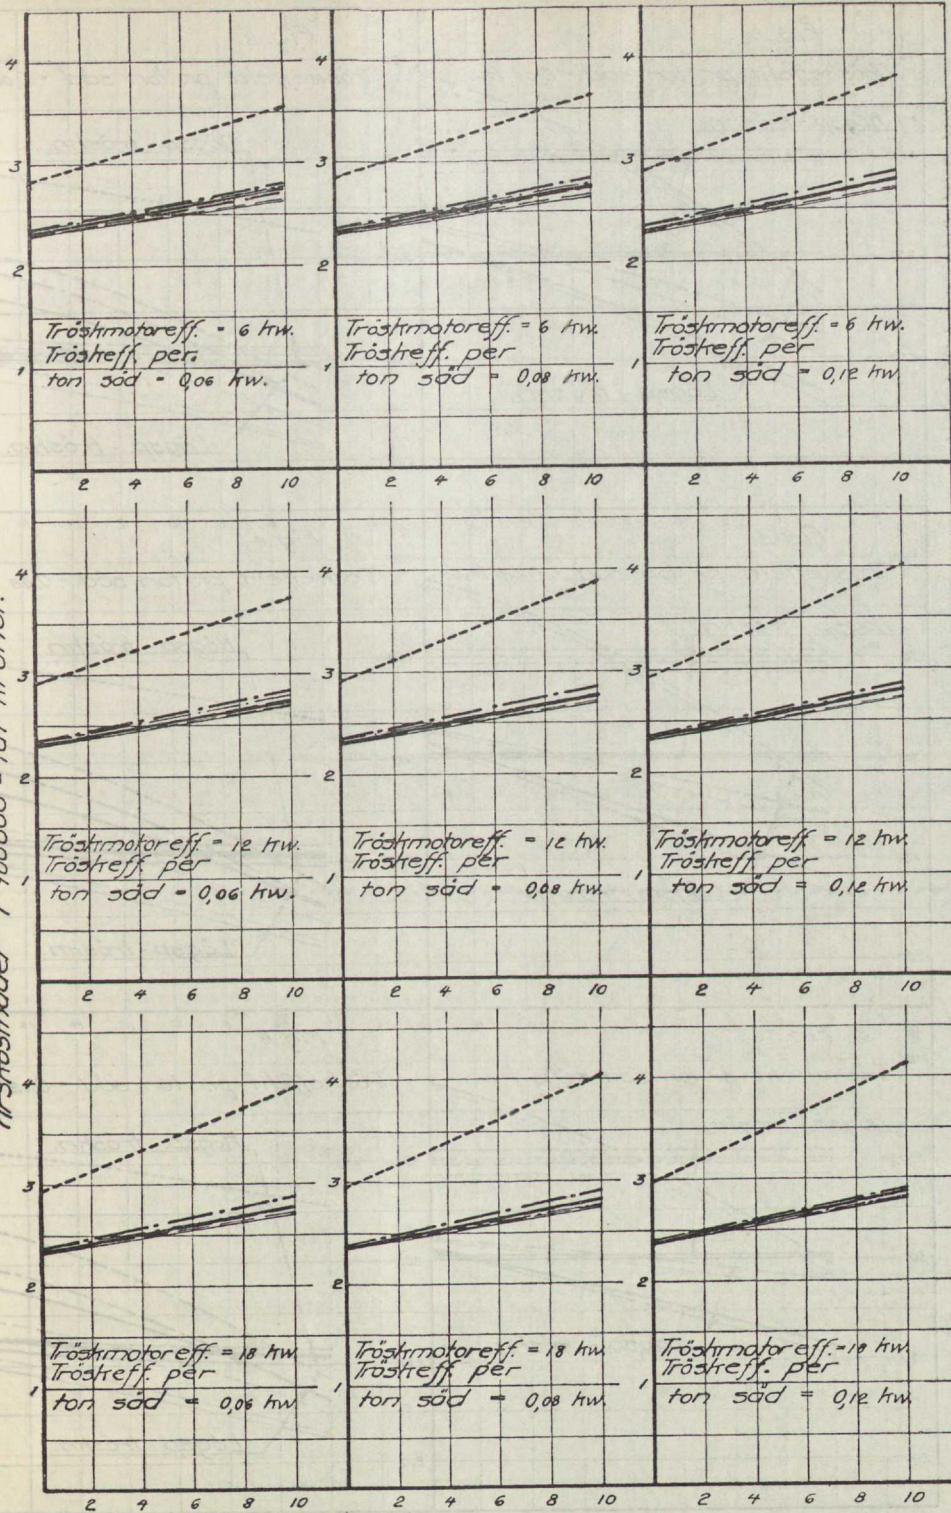 4
3
2
1
Tröskmotoreff. = 6 kw.
Tröskeff. per.
ton säd = 0,06 kw.
2 4 6 8 10
4
3
2
1
Tröskmotoreff. = 6 kw.
Tröskeff. per
ton säd = 0,08 kw.
2 4 6 8 10
4
3
2
1
Tröskmotoreff. = 6 kw.
Tröskeff. per
ton säd = 0,12 kw.
2 4 6 8 10
4
3
2
1
Tröskmotoreff. = 12 kw.
Tröskeff. per
ton säd = 0,06 kw.
2 4 6 8 10
4
3
2
1
Tröskmotoreff. = 12 kw.
Tröskeff. per
ton säd = 0,08 kw.
2 4 6 8 10
4
3
2
1
Tröskmotoreff. = 12 kw.
Tröskeff. per
ton säd = 0,12 kw.
2 4 6 8 10
4
3
2
1
Tröskmotoreff. = 18 kw.
Tröskeff. per
ton säd = 0,06 kw.
2 4 6 8 10
4
3
2
1
Tröskmotoreff. = 18 kw.
Tröskeff. per
ton säd = 0,08 kw.
2 4 6 8 10
4
3
2
1
Tröskmotoreff. = 18 kw.
Tröskeff. per
ton säd = 0,12 kw.
2 4 6 8 10
Årskostnader i 100000-tal kronor.